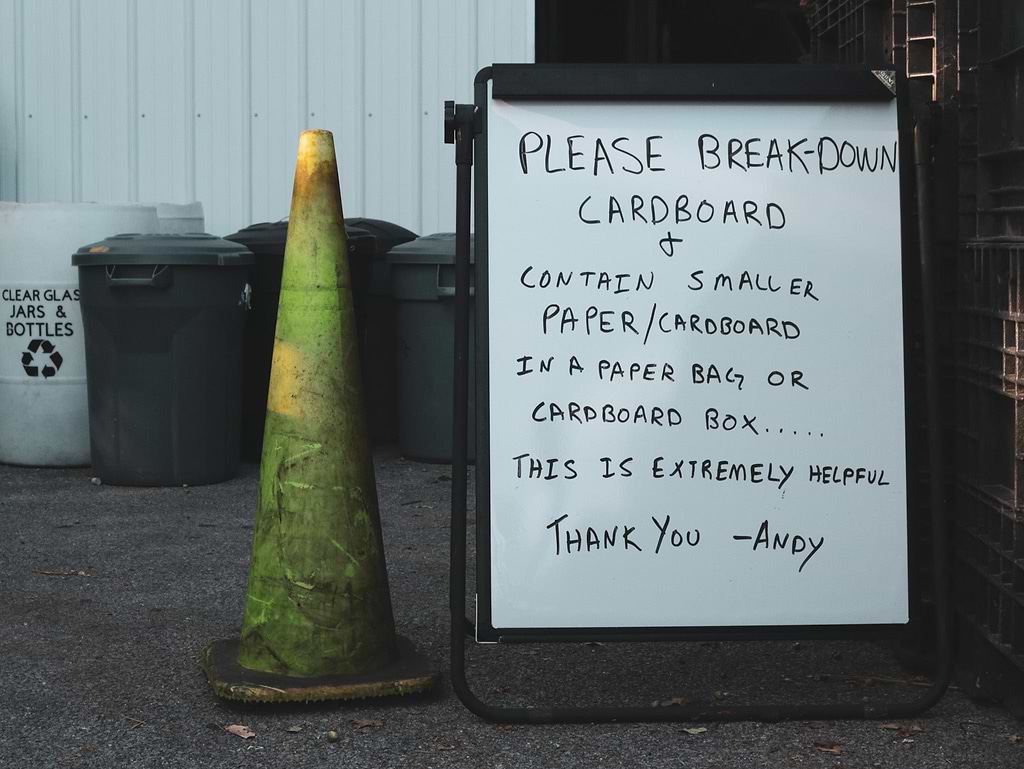 PLEASE BREAK-DOWN
CARDBOARD
&
CONTAIN SMALLER
PAPER/CARDBOARD
IN A PAPER BAG OR
CARDBOARD BOX.....
THIS IS EXTREMELY HELPFUL
THANK YOU -ANDY
CLEAR GLAS
JARS &
BOTTLES